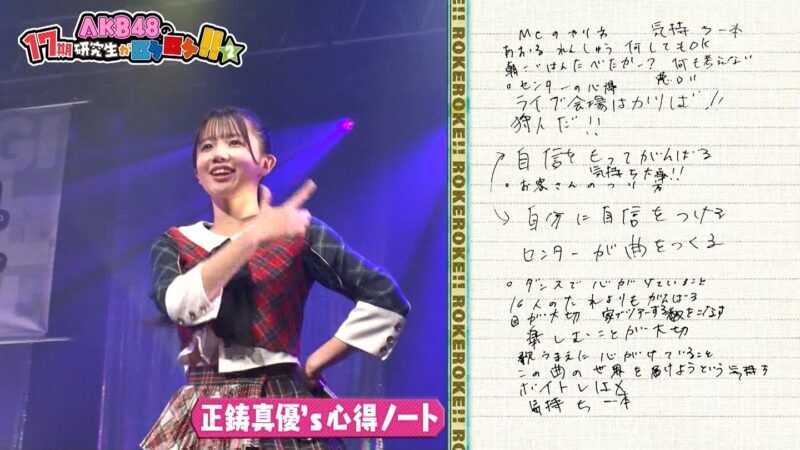 AKB48の
17期研究生がロケロケ!!2
ROKEROKE!! ROKEROKE!! ROKEROKE!! ROKEROKE!! ROKEROKE!!
正鋳真優's心得ノート
MCのやり方 気持ち一本
あおるれんしゅう 何してもOK
朝ごはんたべたかー? 何も考えない
。センターの心得
ライブ会場はかりば!!
狩人だ!!
自信をもってがんばる
気持ち大事!!
。お客さんのつり方
自分に自信をつける
センターが曲をつくる
。ダンスで心がけていること
16人のだれよりもがんばる
目が大切
楽しむことが大切
歌うまえに心がけていること
この曲の世界を届けようという気持ち
ボイトレは✕
気持ち一本